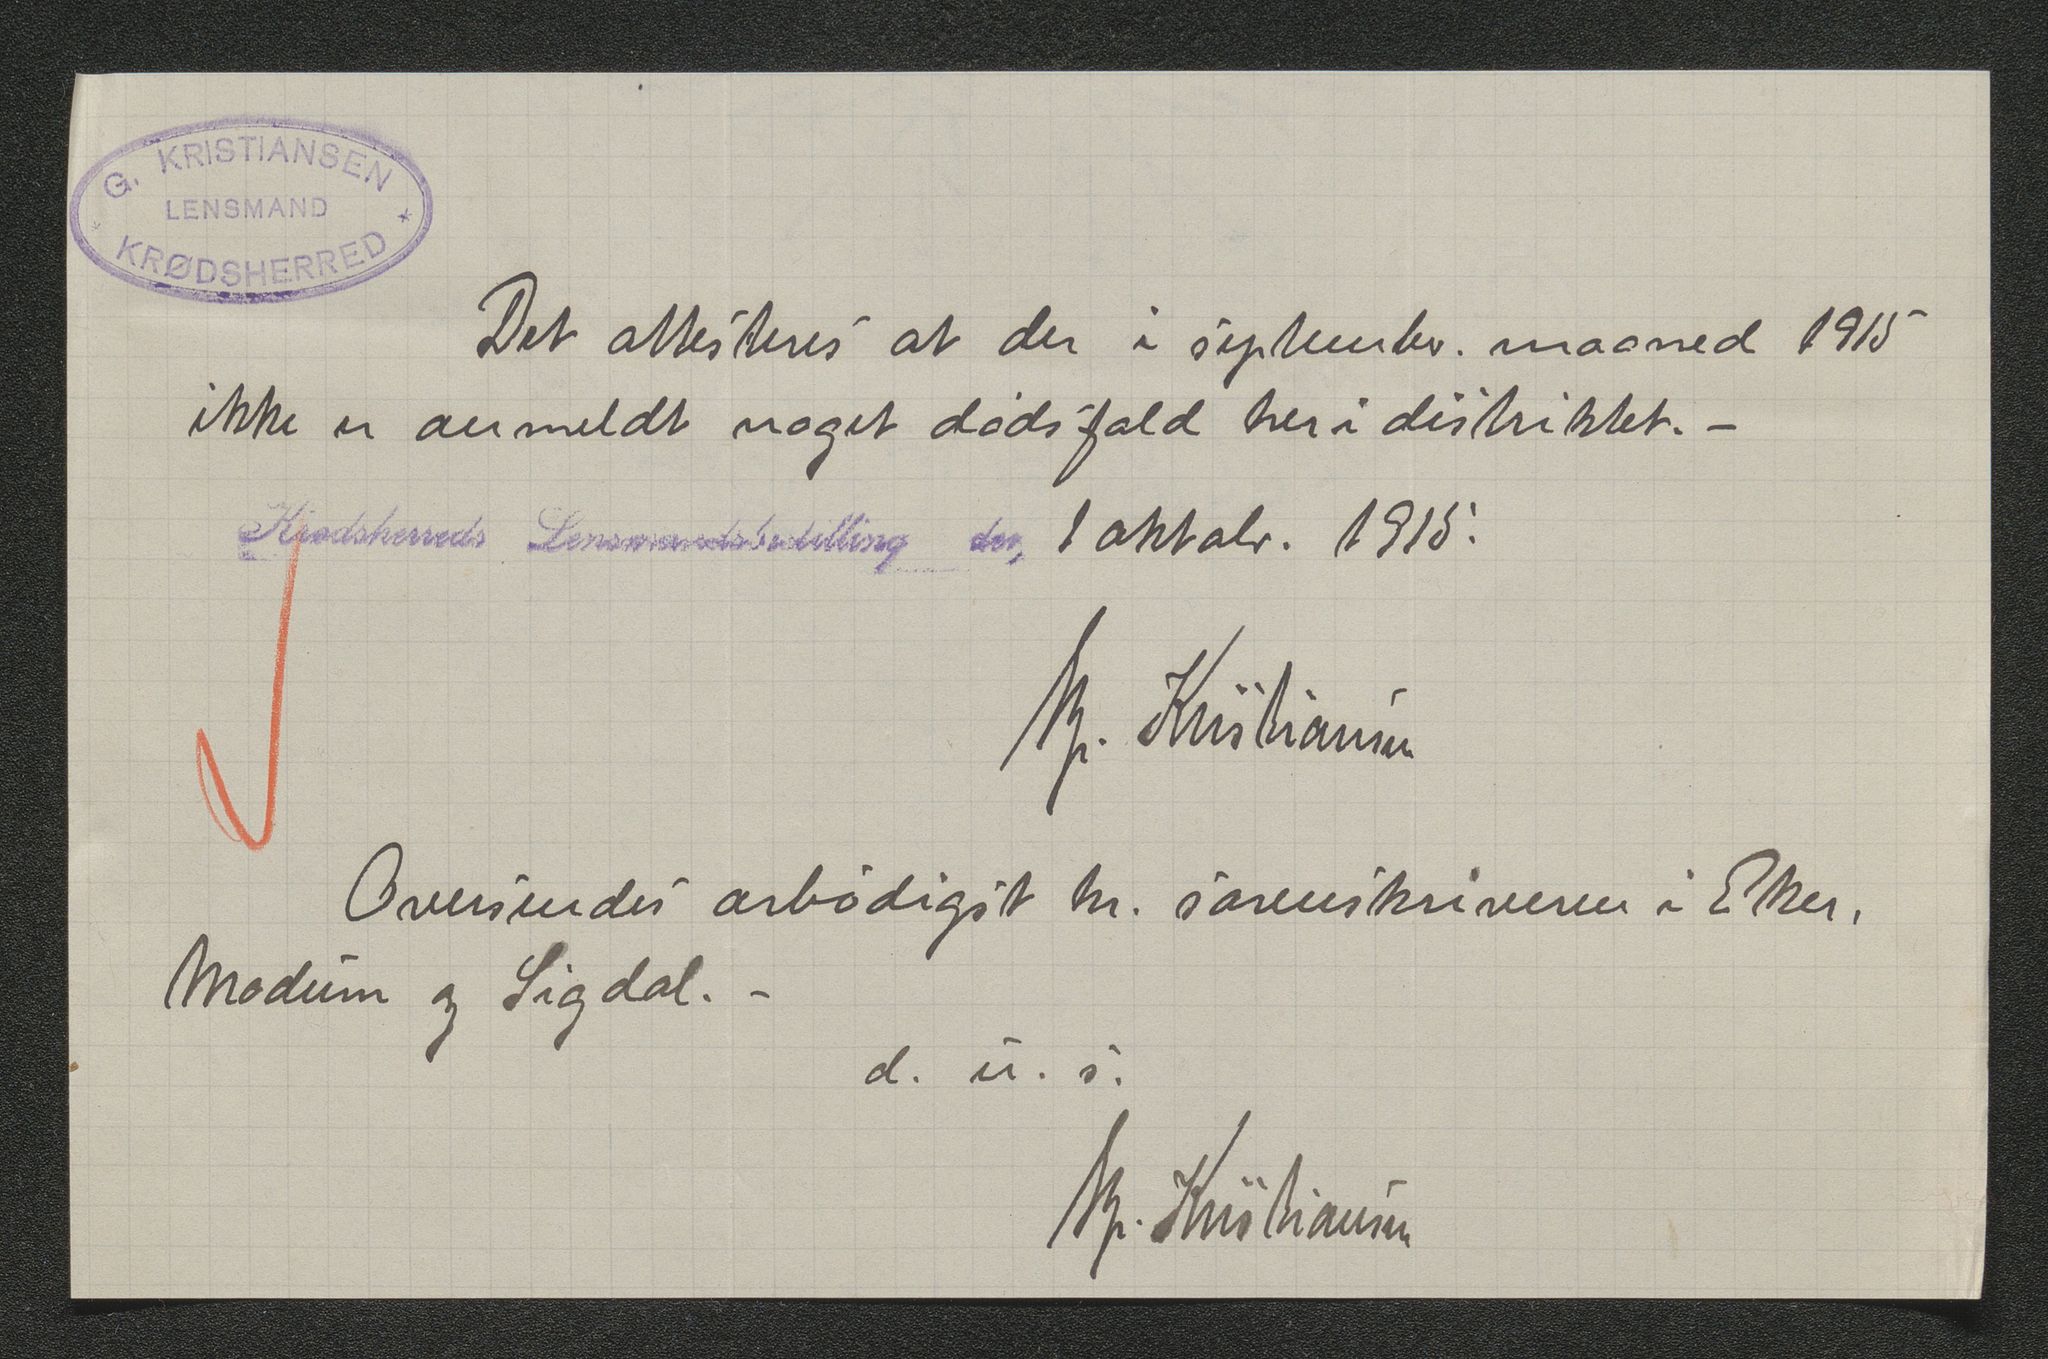 G. KRISTIANSEN
LENSMAND
KRØDSHERRED
Det attesteres at der i septembr. maaned 1915
ikke er anmeldt noget dødsfald her i distriktet. –
Krødsherreds Lensmandsbestilling den, 1 oktobr. 1915.
Kristiansen
Oversendes ærbødigst hr. sorenskriveren i Eker,
Modum og Sigdal. –
d. u. s.
Kristiansen